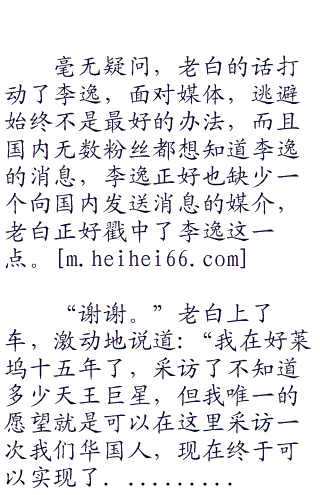 毫无疑问，老白的话打
动了李逸，面对媒体，逃避
始终不是最好的办法，而且
国内无数粉丝都想知道李逸
的消息，李逸正好也缺少一
个向国内发送消息的媒介，
老白正好戳中了李逸这一
点。[m.heihei66.com]
“谢谢。”老白上了
车，激动地说道：“我在好菜
坞十五年了，采访了不知道
多少天王巨星，但我唯一的
愿望就是可以在这里采访一
次我们华国人，现在终于可
以实现了．.........